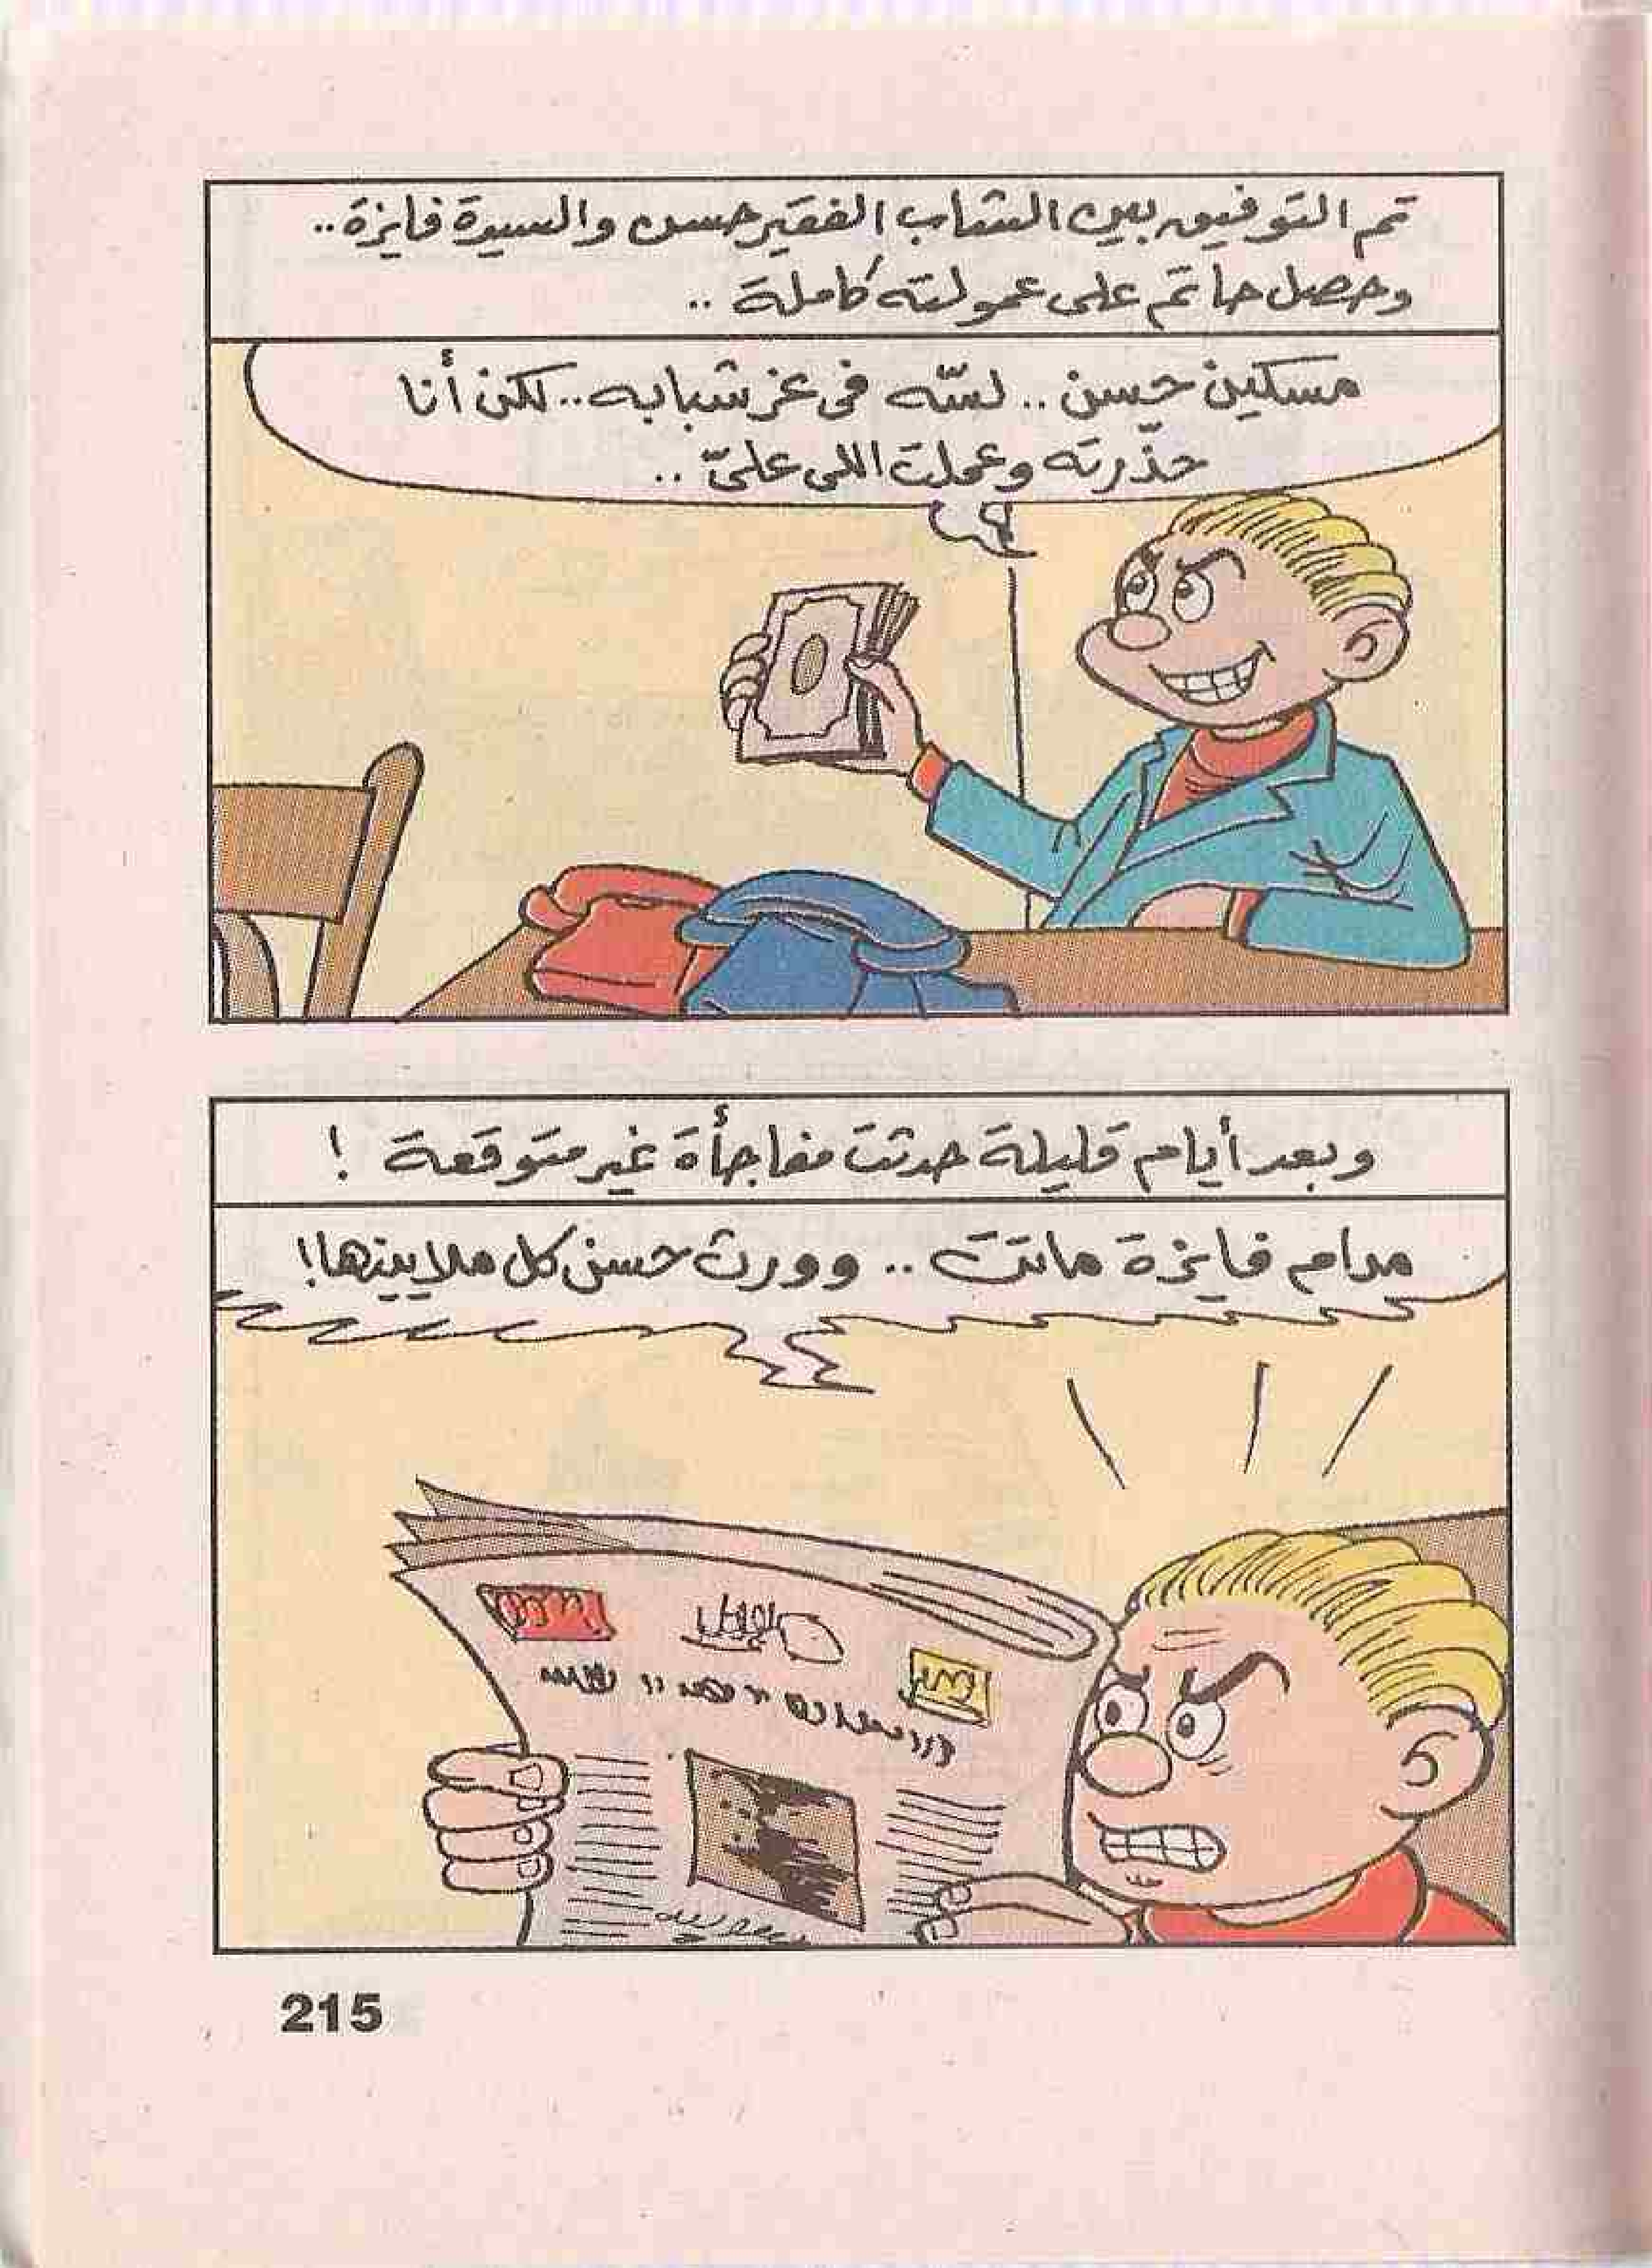 تم التوفيق بين الشاب الفقير حسن والسيدة فايزة..
وحصل حاتم على عمولته كاملة ..
مسكين حسن .. لسّه فى عز شبابه.. لكن أنا
حذّرته وعملت اللى علىّ ..
وبعد أيام قليلة حدثت مفاجأة غير متوقعة !
مدام فايزة ماتت .. وورث حسن كل ملايينها!
215